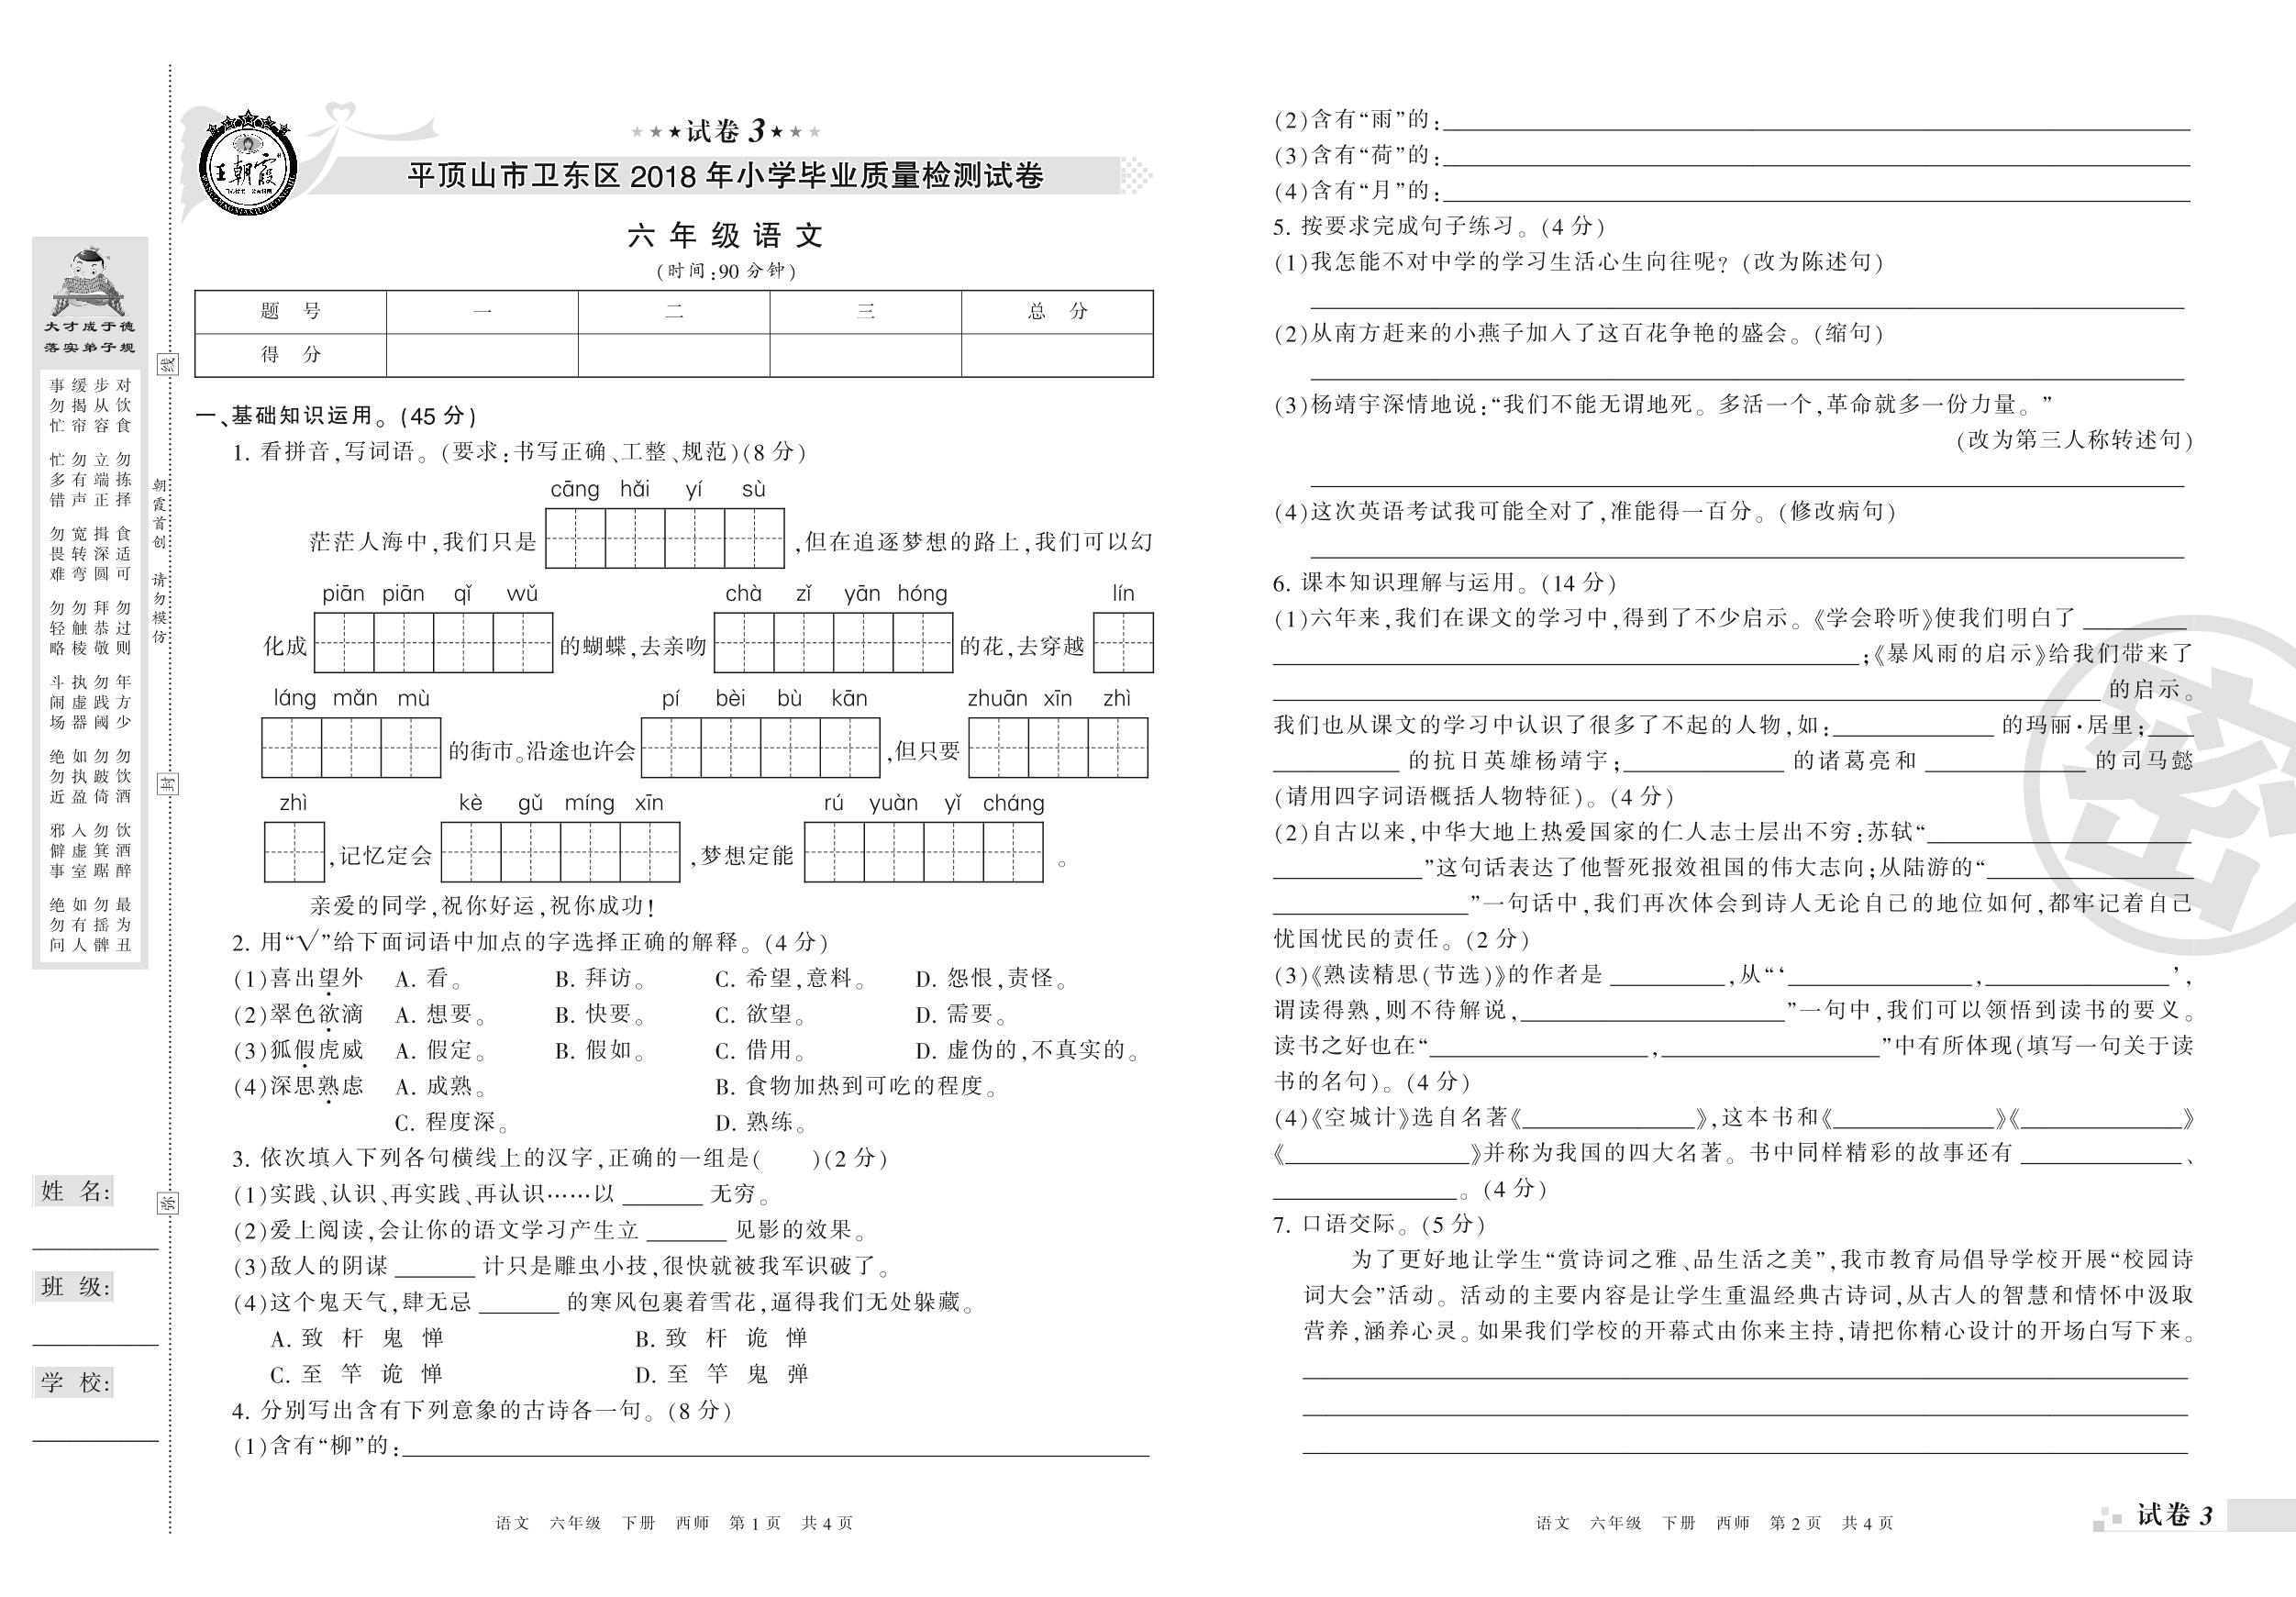 ★★★试卷 3★★★
平顶山市卫东区 2018 年小学毕业质量检测试卷
六年级语文
(时间:90 分钟)
题 号 一 二 三 总 分
得 分
一、基础知识运用。(45 分)
1. 看拼音,写词语。(要求:书写正确、工整、规范)(8 分)
cāng hǎi yí sù
茫茫人海中,我们只是 ,但在追逐梦想的路上,我们可以幻
piān piān qǐ wǔ chà zǐ yān hóng lín
化成 的蝴蝶,去亲吻 的花,去穿越
láng mǎn mù pí bèi bù kān zhuān xīn zhì
的街市。沿途也许会 ,但只要
zhì kè gǔ míng xīn rú yuàn yǐ cháng
,记忆定会 ,梦想定能 。
亲爱的同学,祝你好运,祝你成功!
2. 用“√”给下面词语中加点的字选择正确的解释。(4 分)
(1)喜出望外 A. 看。 B. 拜访。 C. 希望,意料。 D. 怨恨,责怪。
(2)翠色欲滴 A. 想要。 B. 快要。 C. 欲望。 D. 需要。
(3)狐假虎威 A. 假定。 B. 假如。 C. 借用。 D. 虚伪的,不真实的。
(4)深思熟虑 A. 成熟。 B. 食物加热到可吃的程度。
C. 程度深。 D. 熟练。
3. 依次填入下列各句横线上的汉字,正确的一组是( )(2 分)
(1)实践、认识、再实践、再认识……以 ______ 无穷。
(2)爱上阅读,会让你的语文学习产生立 ______ 见影的效果。
(3)敌人的阴谋 ______ 计只是雕虫小技,很快就被我军识破了。
(4)这个鬼天气,肆无忌 ______ 的寒风包裹着雪花,逼得我们无处躲藏。
A. 致 杆 鬼 惮 B. 致 杆 诡 惮
C. 至 竿 诡 惮 D. 至 竿 鬼 弹
4. 分别写出含有下列意象的古诗各一句。(8 分)
(1)含有“柳”的:
语文 六年级 下册 西师 第 1 页 共 4 页
(2)含有“雨”的:
(3)含有“荷”的:
(4)含有“月”的:
5. 按要求完成句子练习。(4 分)
(1)我怎能不对中学的学习生活心生向往呢?(改为陈述句)
(2)从南方赶来的小燕子加入了这百花争艳的盛会。(缩句)
(3)杨靖宇深情地说:“我们不能无谓地死。多活一个,革命就多一份力量。”
(改为第三人称转述句)
(4)这次英语考试我可能全对了,准能得一百分。(修改病句)
6. 课本知识理解与运用。(14 分)
(1)六年来,我们在课文的学习中,得到了不少启示。《学会聆听》使我们明白了 ______
______;《暴风雨的启示》给我们带来了
______ 的启示。
我们也从课文的学习中认识了很多了不起的人物,如:______ 的玛丽·居里;____
______ 的抗日英雄杨靖宇;______ 的诸葛亮和 ______ 的司马懿
(请用四字词语概括人物特征)。(4 分)
(2)自古以来,中华大地上热爱国家的仁人志士层出不穷:苏轼“______
______”这句话表达了他誓死报效祖国的伟大志向;从陆游的“______
______”一句话中,我们再次体会到诗人无论自己的地位如何,都牢记着自己
忧国忧民的责任。(2 分)
(3)《熟读精思(节选)》的作者是 ______,从“‘______,______’,
谓读得熟,则不待解说,______”一句中,我们可以领悟到读书的要义。
读书之好也在“______,______”中有所体现(填写一句关于读
书的名句)。(4 分)
(4)《空城计》选自名著《______》,这本书和《______》《______》
《______》并称为我国的四大名著。书中同样精彩的故事还有 ______、
______。(4 分)
7. 口语交际。(5 分)
为了更好地让学生“赏诗词之雅、品生活之美”,我市教育局倡导学校开展“校园诗
词大会”活动。活动的主要内容是让学生重温经典古诗词,从古人的智慧和情怀中汲取
营养,涵养心灵。如果我们学校的开幕式由你来主持,请把你精心设计的开场白写下来。
语文 六年级 下册 西师 第 2 页 共 4 页
试卷 3
密
王朝霞
大才成于德
落实弟子规
对饮食 勿拣择 食适可 勿过则
年方少 勿饮酒 饮酒醉 最为丑
步从容 立端正 揖深圆 拜恭敬
勿践阈 勿跛倚 勿箕踞 勿摇髀
缓揭帘 勿有声 宽转弯 勿触棱
执虚器 如执盈 入虚室 如有人
事勿忙 忙多错 勿畏难 勿轻略
斗闹场 绝勿近 邪僻事 绝勿问
姓 名:
班 级:
学 校:
线
封
弥
朝霞首创 请勿模仿